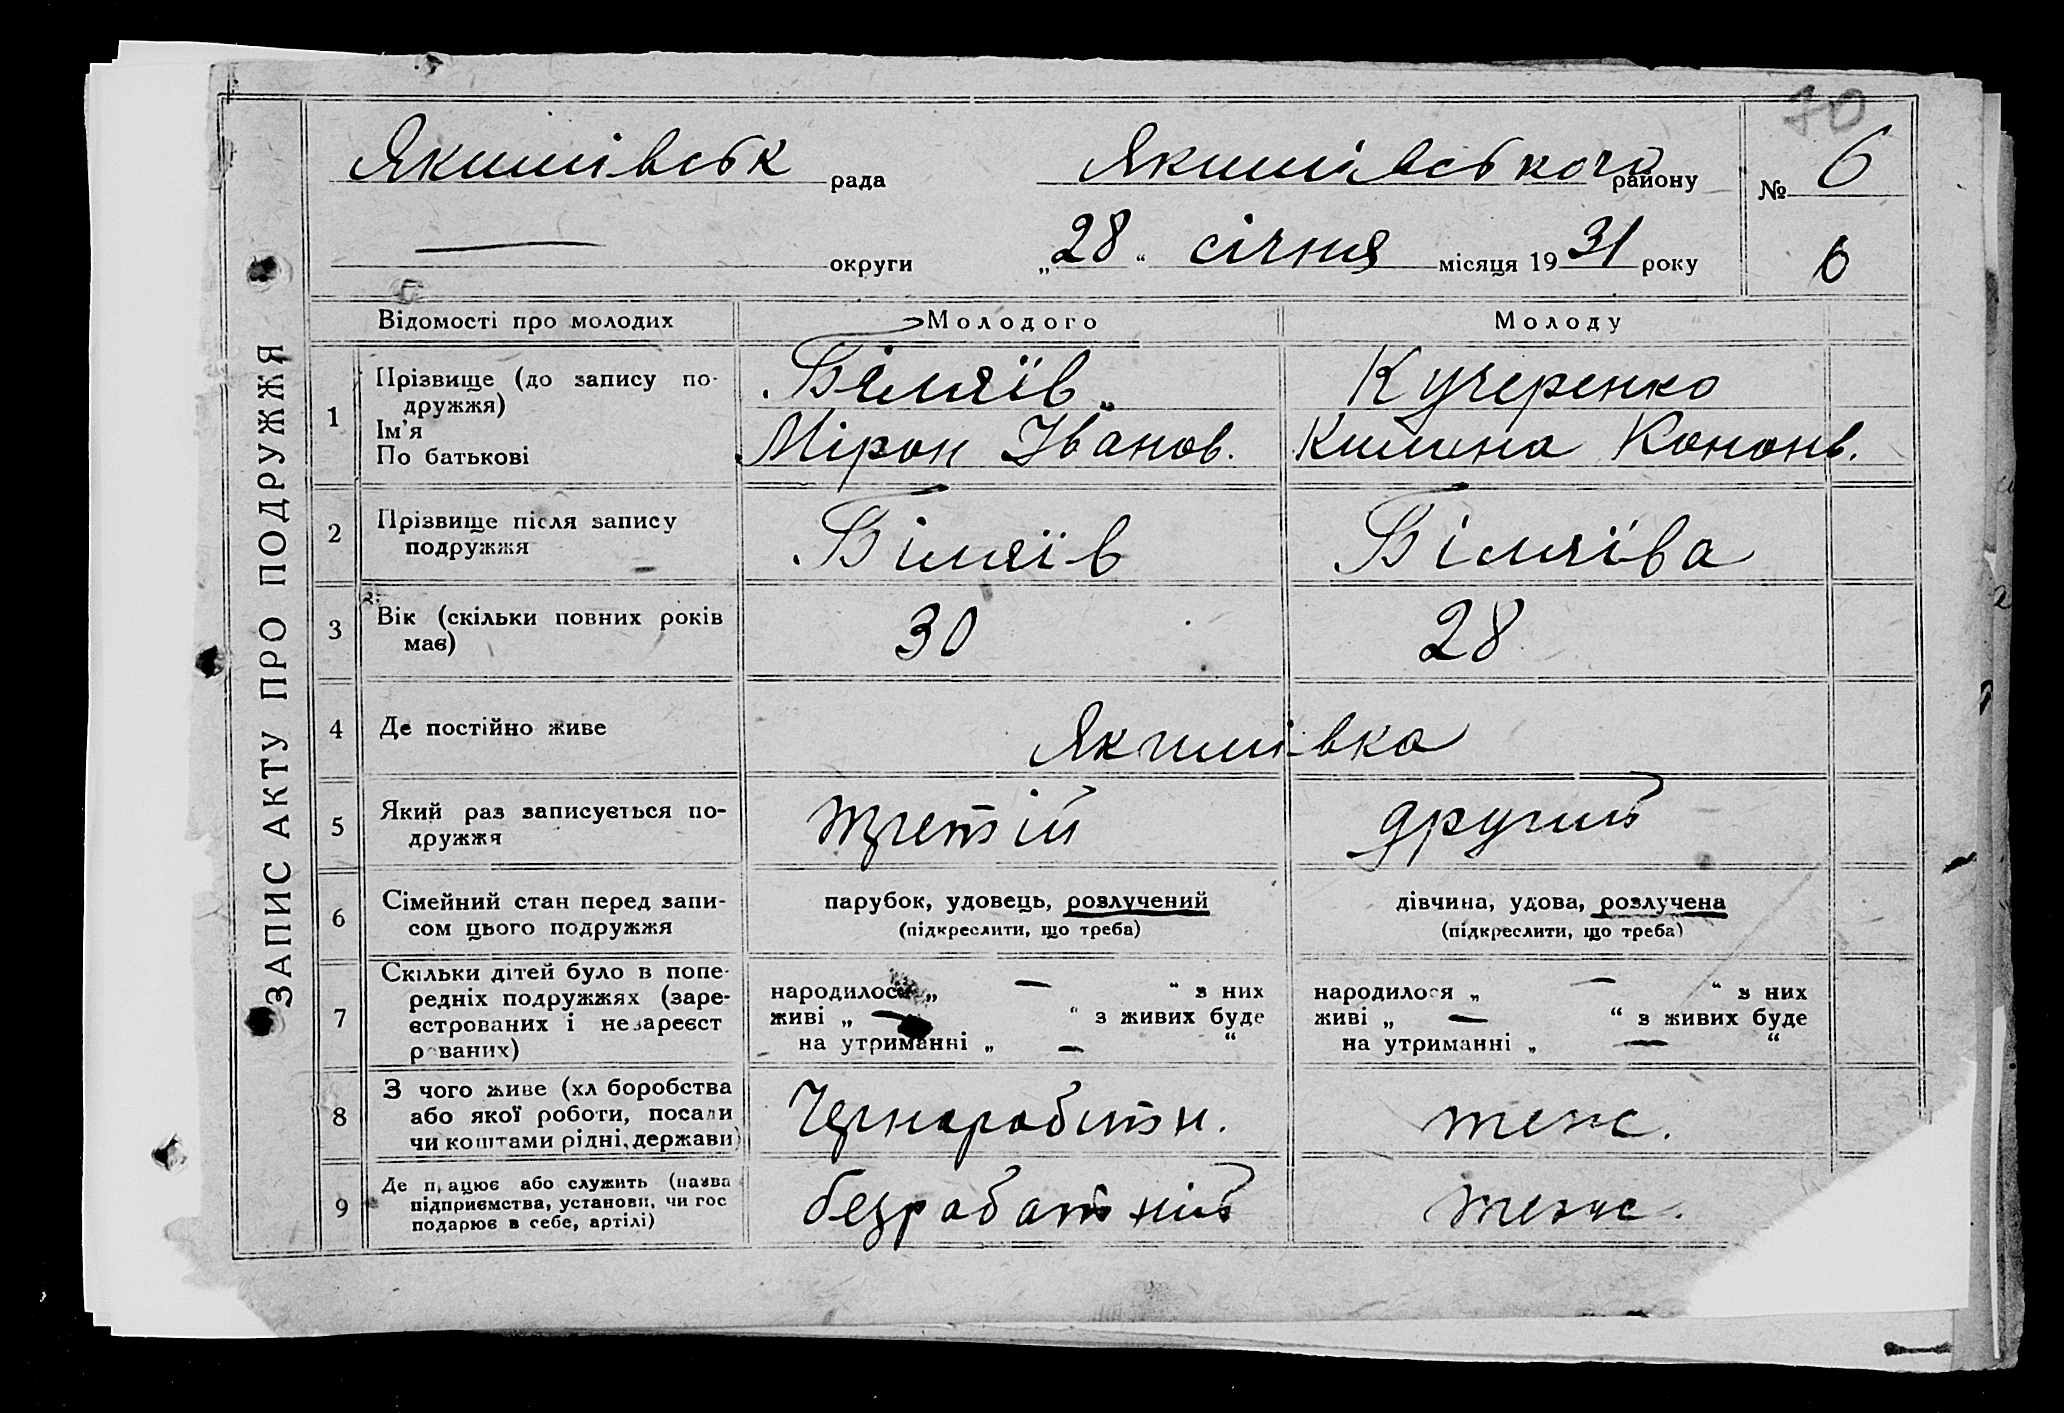 70
Якимівськ рада Якимівського району № 6
округи „28“ січня місяця 1931 року 6
ЗАПИС АКТУ ПРО ПОДРУЖЖЯ
Відомості про молодих Молодого Молоду
1 Прізвище (до запису по-
дружжя) Біляїв Кучеренко
Ім'я
По батькові Мірон Іванов. Килина Кононв.
2 Прізвище після запису
подружжя Біляїв Біляіва
3 Вік (скільки повних років
має) 30 28
4 Де постійно живе Якимівка
5 Який раз записується по-
дружжя третій другий
6 Сімейний стан перед запи-
сом цього подружжя
парубок, удовець, розлучений
(підкреслити, що треба)
дівчина, удова, розлучена
(підкреслити, що треба)
7 Скільки дітей було в попе-
редніх подружжях (заре-
єстрованих і незареєст
рованих)
народилося „ — “ з них
живі „ — “ з живих буде
на утриманні „ — “
народилося „ — “ з них
живі „ — “ з живих буде
на утриманні „ — “
8 З чого живе (хл боробства
або якої роботи, посади
чи коштами рідні, держави)
Чернорабітн. теж.
9 Де працює або служить (назва
підприємства, установи, чи гос
подарює в себе, артілі)
безработній теж.